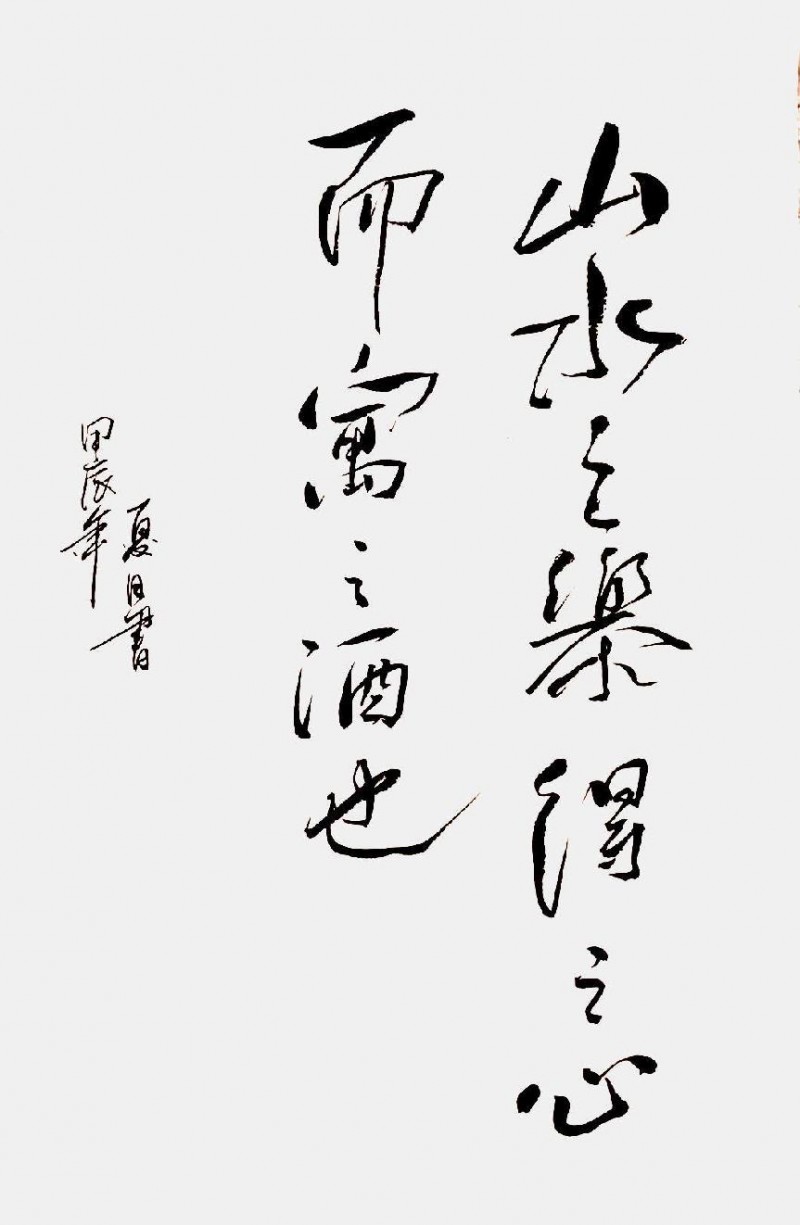 山水之樂得之心
而寓之酒也
甲辰年
夏日書